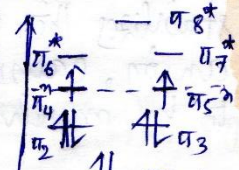 π8*
π6* π7*
π4n π5n
π2 π3